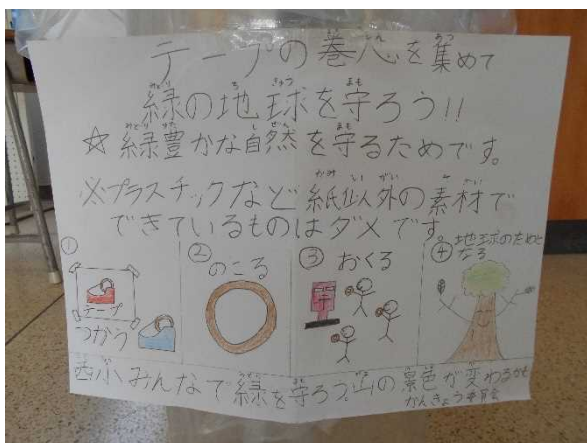 テープの巻心を集めて
緑の地球を守ろう!!
☆緑豊かな自然を守るためです。
※プラスチックなど紙以外の素材で
できているものはダメです。
①
テープ
つかう
②
のこる
③
おくる
④
地球のために
なる
みんなで緑を守ろう。山の景色が変わるかも
かんきょう委員会